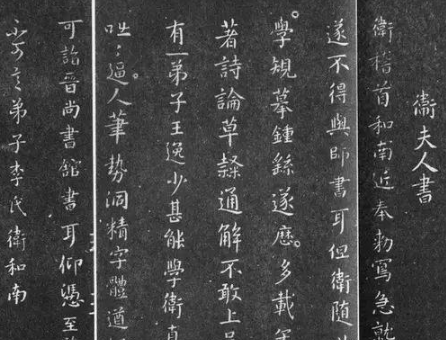 衛夫人書
衛稽首和南近奉勑寫急就
遂不得與師書耳但衛隨
學規摹鍾繇遂歷多載
著詩論草隸通解不敢上
有一弟子王逸少甚能學衛真
咄咄逼人筆勢洞精字體遒
可詣晉尚書館書耳仰憑至
弟子李氏衛和南